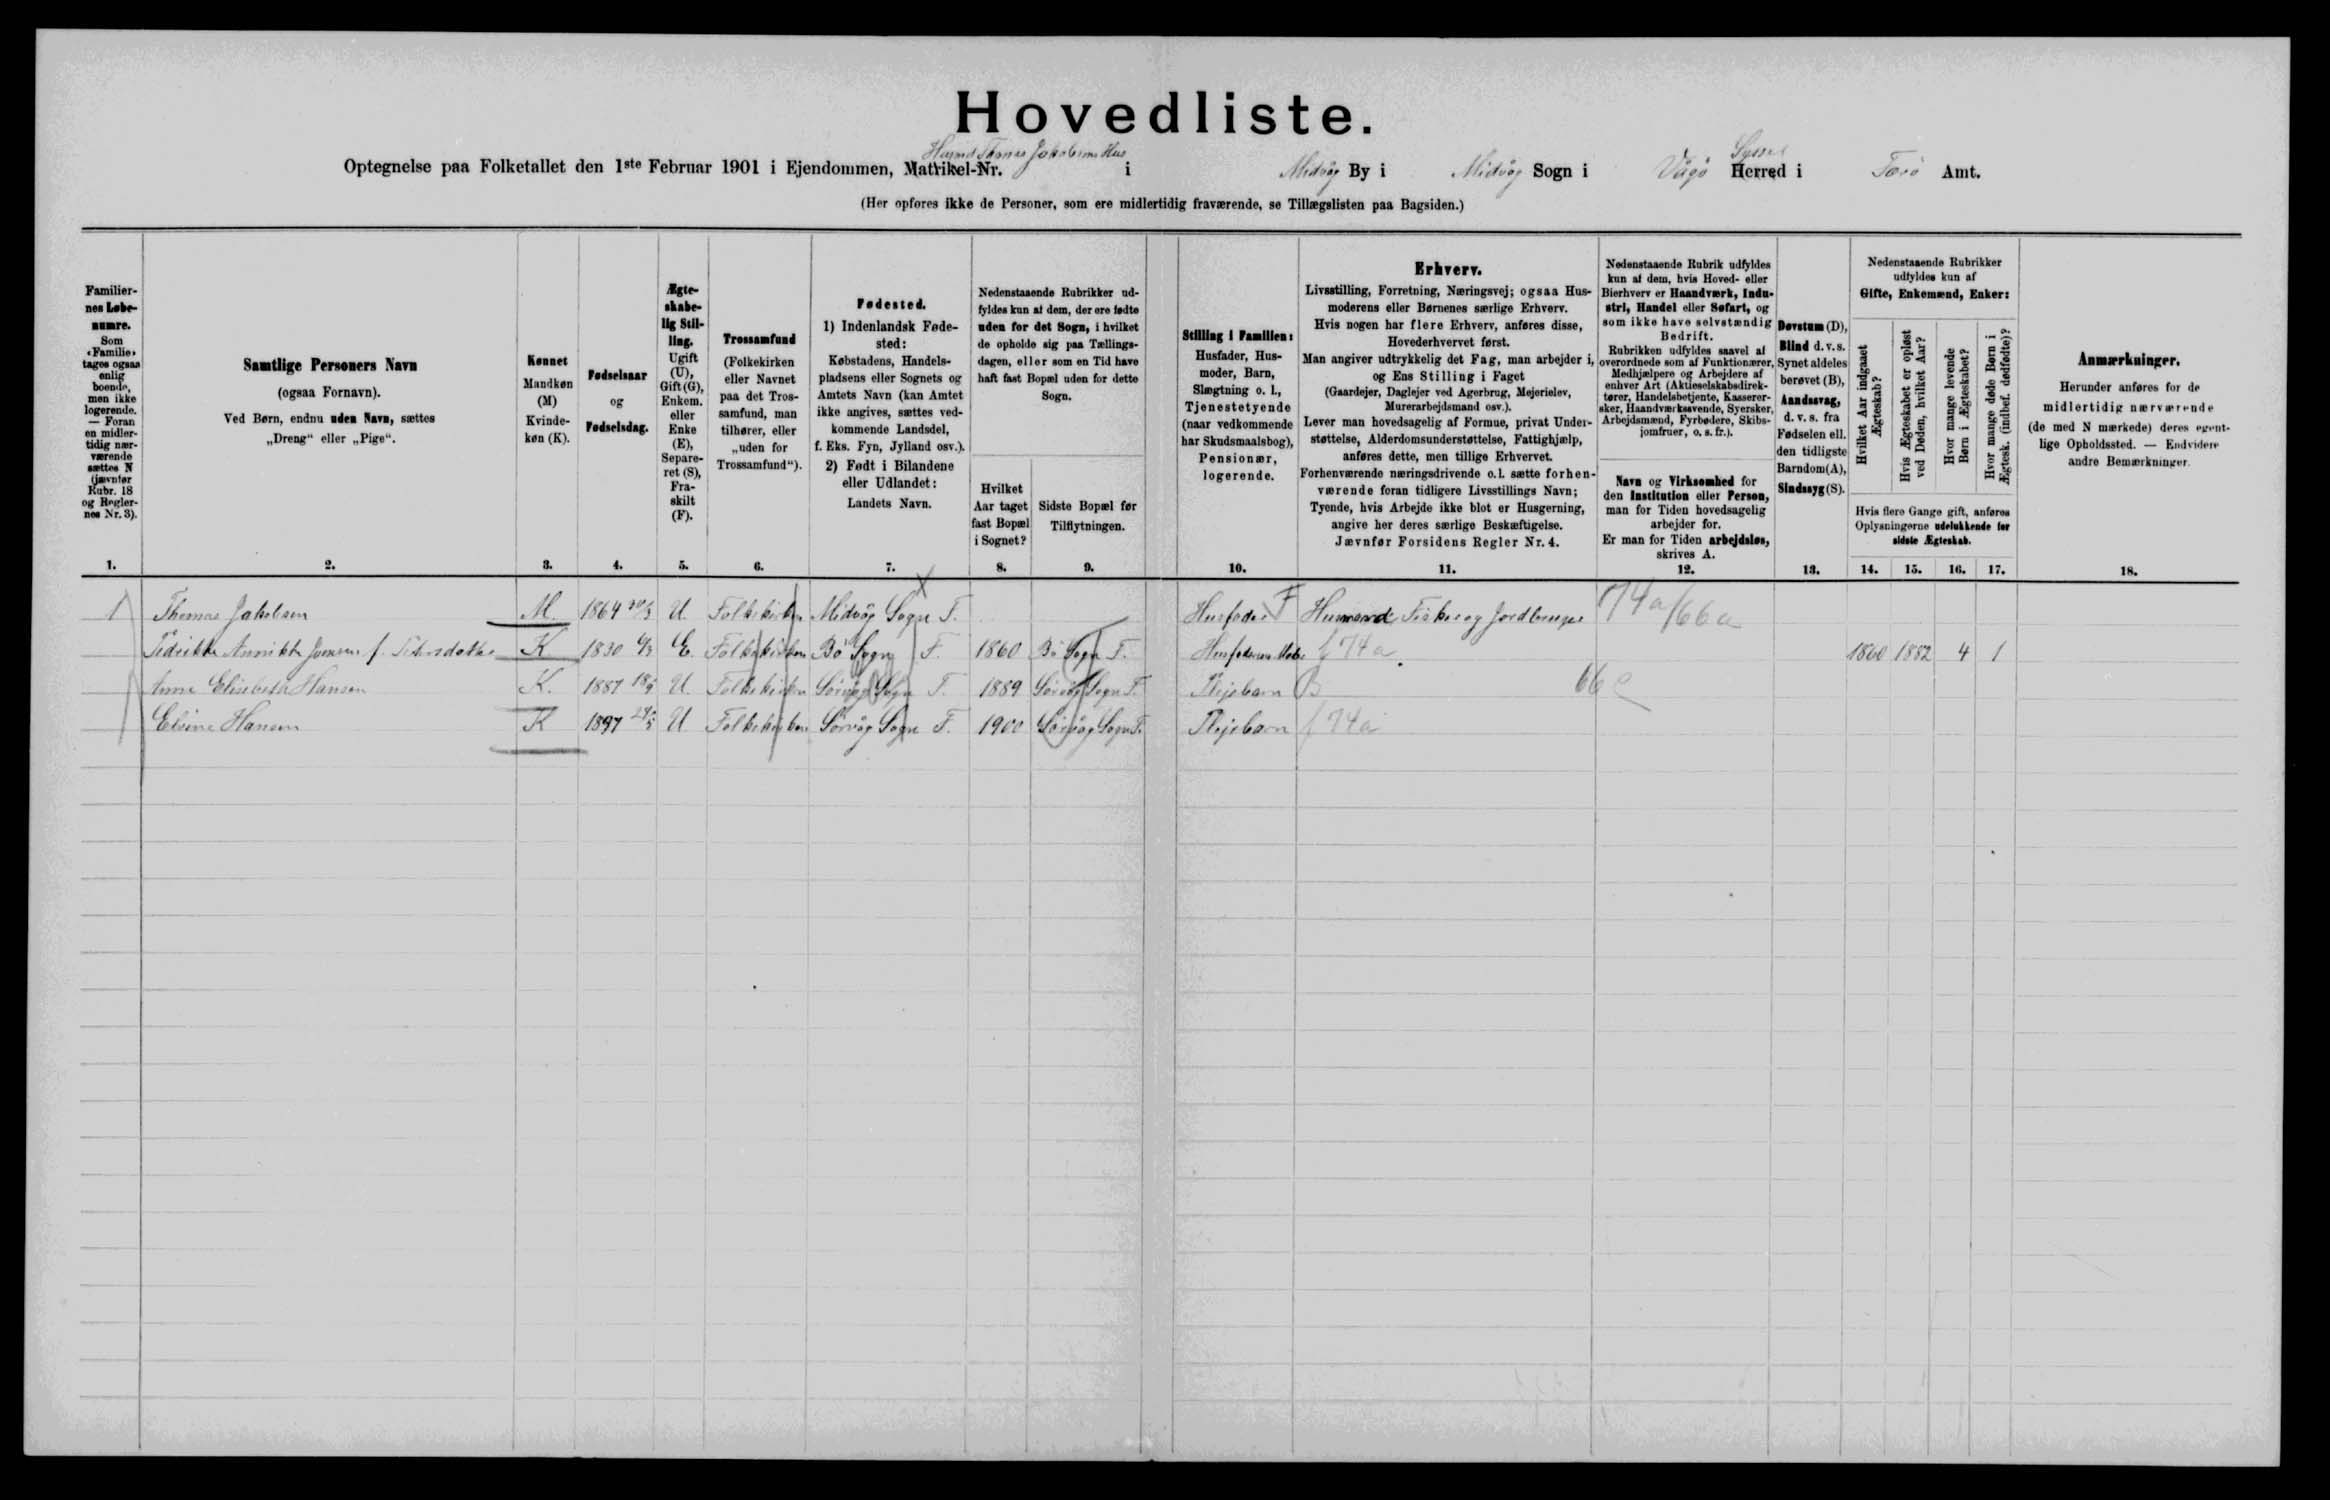 Hovedliste.
Husmd Thomas Jakobsens Hus
Syssel
Optegnelse paa Folketallet den 1ste Februar 1901 i Ejendommen, Matrikel-Nr. i Midvåg By i Midvåg Sogn i Vågø Herred i Færø Amt.
(Her opføres ikke de Personer, som ere midlertidig fraværende, se Tillægslisten paa Bagsiden.)
Familier-
nes Løbe-
numre.
Som
«Familie»
tages ogsaa
enlig
boende,
men ikke
logerende.
— Foran
en midler-
tidig nær-
værende
sættes N
(jævnfør
Rubr. 18
og Regler-
nes Nr. 3).
1.
Samtlige Personers Navn
(ogsaa Fornavn).
Ved Børn, endnu uden Navn, sættes
„Dreng“ eller „Pige“.
2.
Kønnet
Mandkøn
(M)
Kvinde-
køn (K).
3.
Fødselsaar
og
Fødselsdag.
4.
Ægte-
skabe-
lig Stil-
ling.
Ugift
(U),
Gift (G),
Enkem.
eller
Enke
(E),
Separe-
ret (S),
Fra-
skilt
(F).
5.
Trossamfund
(Folkekirken
eller Navnet
paa det Tros-
samfund, man
tilhører, eller
„uden for
Trossamfund“).
6.
Fødested.
1) Indenlandsk Føde-
sted:
Købstadens, Handels-
pladsens eller Sognets og
Amtets Navn (kan Amtet
ikke angives, sættes ved-
kommende Landsdel,
f. Eks. Fyn, Jylland osv.).
2) Født i Bilandene
eller Udlandet:
Landets Navn.
7.
Nedenstaaende Rubrikker ud-
fyldes kun af dem, der ere fødte
uden for det Sogn, i hvilket
de opholde sig paa Tællings-
dagen, eller som en Tid have
haft fast Bopæl uden for dette
Sogn.
Hvilket
Aar taget
fast Bopæl
i Sognet?
8.
Sidste Bopæl før
Tilflytningen.
9.
Stilling i Familien:
Husfader, Hus-
moder, Barn,
Slægtning o. l.,
Tjenestetyende
(naar vedkommende
har Skudsmaalsbog),
Pensionær,
logerende.
10.
Erhverv.
Livsstilling, Forretning, Næringsvej; ogsaa Hus-
moderens eller Børnenes særlige Erhverv.
Hvis nogen har flere Erhverv, anføres disse,
Hovederhvervet først.
Man angiver udtrykkelig det Fag, man arbejder i,
og Ens Stilling i Faget
(Gaardejer, Daglejer ved Agerbrug, Mejerielev,
Murerarbejdsmand osv.).
Lever man hovedsagelig af Formue, privat Under-
støttelse, Alderdomsunderstøttelse, Fattighjælp,
anføres dette, men tillige Erhvervet.
Forhenværende næringsdrivende o.l. sætte forhen-
værende foran tidligere Livsstillings Navn;
Tyende, hvis Arbejde ikke blot er Husgerning,
angive her deres særlige Beskæftigelse.
Jævnfør Forsidens Regler Nr. 4.
11.
Nedenstaaende Rubrik udfyldes
kun af dem, hvis Hoved- eller
Bierhverv er Haandværk, Indu-
stri, Handel eller Søfart, og
som ikke have selvstændig
Bedrift.
Rubrikken udfyldes saavel af
overordnede som af Funktionærer,
Medhjælpere og Arbejdere af
enhver Art (Aktieselskabsdirek-
tører, Handelsbetjente, Kasserer-
sker, Haandværkssvende, Syersker,
Arbejdsmænd, Fyrbødere, Skibs-
jomfruer, o. s. fr.).
Navn og Virksomhed for
den Institution eller Person,
man for Tiden hovedsagelig
arbejder for.
Er man for Tiden arbejdsløs,
skrives A.
12.
Døvstum (D),
Blind d. v. s.
Synet aldeles
berøvet (B),
Aandssvag,
d. v. s. fra
Fødselen ell.
den tidligste
Barndom (A),
Sindssyg (S).
13.
Nedenstaaende Rubrikker
udfyldes kun af
Gifte, Enkemænd, Enker:
Hvilket Aar indgaaet
Ægteskab?
Hvis Ægteskabet er opløst
ved Døden, hvilket Aar?
Hvor mange levende
Børn i Ægteskabet?
Hvor mange døde Børn i
Ægtesk. (indbef. dødfødte)?
Hvis flere Gange gift, anføres
Oplysningerne udelukkende for
sidste Ægteskab.
14. 15. 16. 17.
Anmærkninger.
Herunder anføres for de
midlertidig nærværende
(de med N mærkede) deres egent-
lige Opholdssted. — Endvidere
andre Bemærkninger.
18.
1 Thomas Jakobsen M. 1864 30/3 U Folkekirken Midvåg Sogn F. Husfader F Husmand, Fisker og Jordbruger 74a/66a
Fidrikke Annikke Joensen f. K 1830 E. Folkekirken Bø Sogn F. 1860 Bø Sogn F. Husfaderens Moder f 74a 1860 1882 4 1
Anne Elisebeth Hansen K. 1887 U. Folkekirken Sørvåg Sogn F. 1889 Sørvåg Sogn F. Plejebarn B 66
Elsine Hansen K 1897 U Folkekirken Sørvåg Sogn F. 1900 Sørvåg Sogn F. Plejebarn f 74a